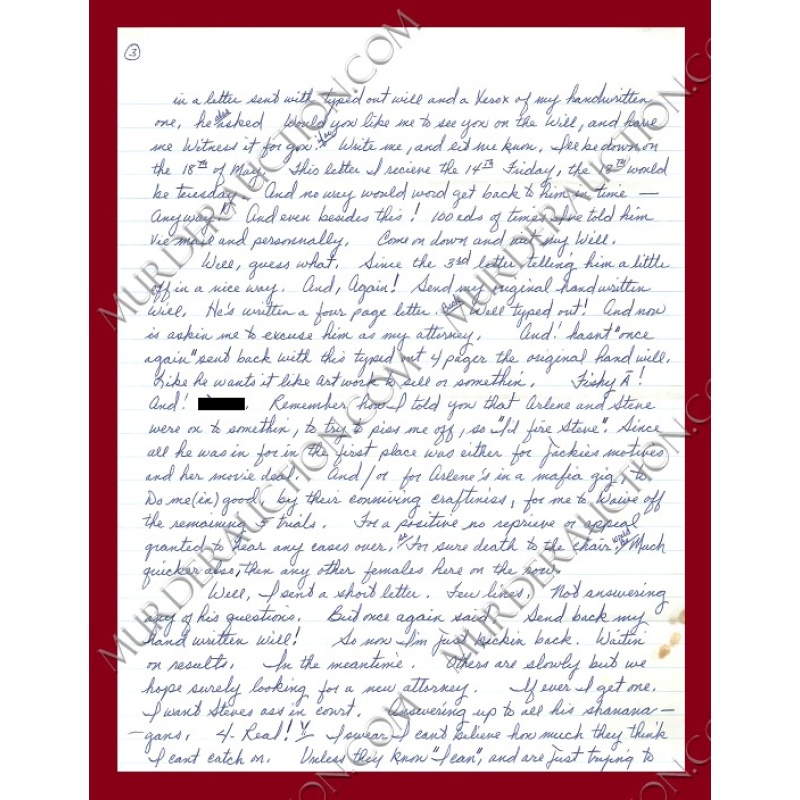 ③
in a letter sent with typed out will and a Xerox of my handwritten
one, he also asked Would you like me to see you on the Will, and have
me Witness it for you. Write me, and let me know. I'll be down on
the 18TH of May. This letter I recieve the 14TH Friday, the 18TH would
be Teusday. And no way would word get back to him in time —
Anyway. And even besides this! 100eds of times I've told him
Vie mail and personnally, Come on down and my Will.
Well, guess what. Since the 3rd letter telling him a little
off in a nice way. And, Again! Send my original handwritten
will. He's written a four page letter. Well typed out! And now
is askin me to excuse him as my attorney. And! hasnt "once
again" sent back with this typed out 4 pager the original hand will.
Like he wants it like Art work to sell or somethin. Fishy Ā!
And! Remember how I told you that Arlene and Steve
were on to somethin, to try to piss me off, so "I'd fire Steve". Since
all he was in for in the first place was either for Jackies motives
and her movie deal. And/or for Arlene's in a mafia gig, to
Do me (in) good, by their conniving craftiness, for me to Waive off
the remaining 5 trials. For a positive no reprieve or appeal
granted to hear any cases over. For sure death to the chair. Much
quicker also, then any other females here on the row.
Well, I sent a short letter. Few lines. Not answering
any of his questions. But once again said. Send back my
hand written will! So now I'm just kickin back. Waitin
on results. In the meantime. Others are slowly but we
hope surely looking for a new attorney. If ever I get one.
I want Steves ass in court. Answering up to all his shanana-
-gans. 4-Real! I swear I cant believe how much they think
I cant catch on. Unless they know "I can", and are just trying to
MURDERAUCTION.COM
MURDERAUCTION.COM
MURDERAUCTION.COM
MURDERAUCTION.COM
MURDERAUCTION.COM
MURDERAUCTION.COM